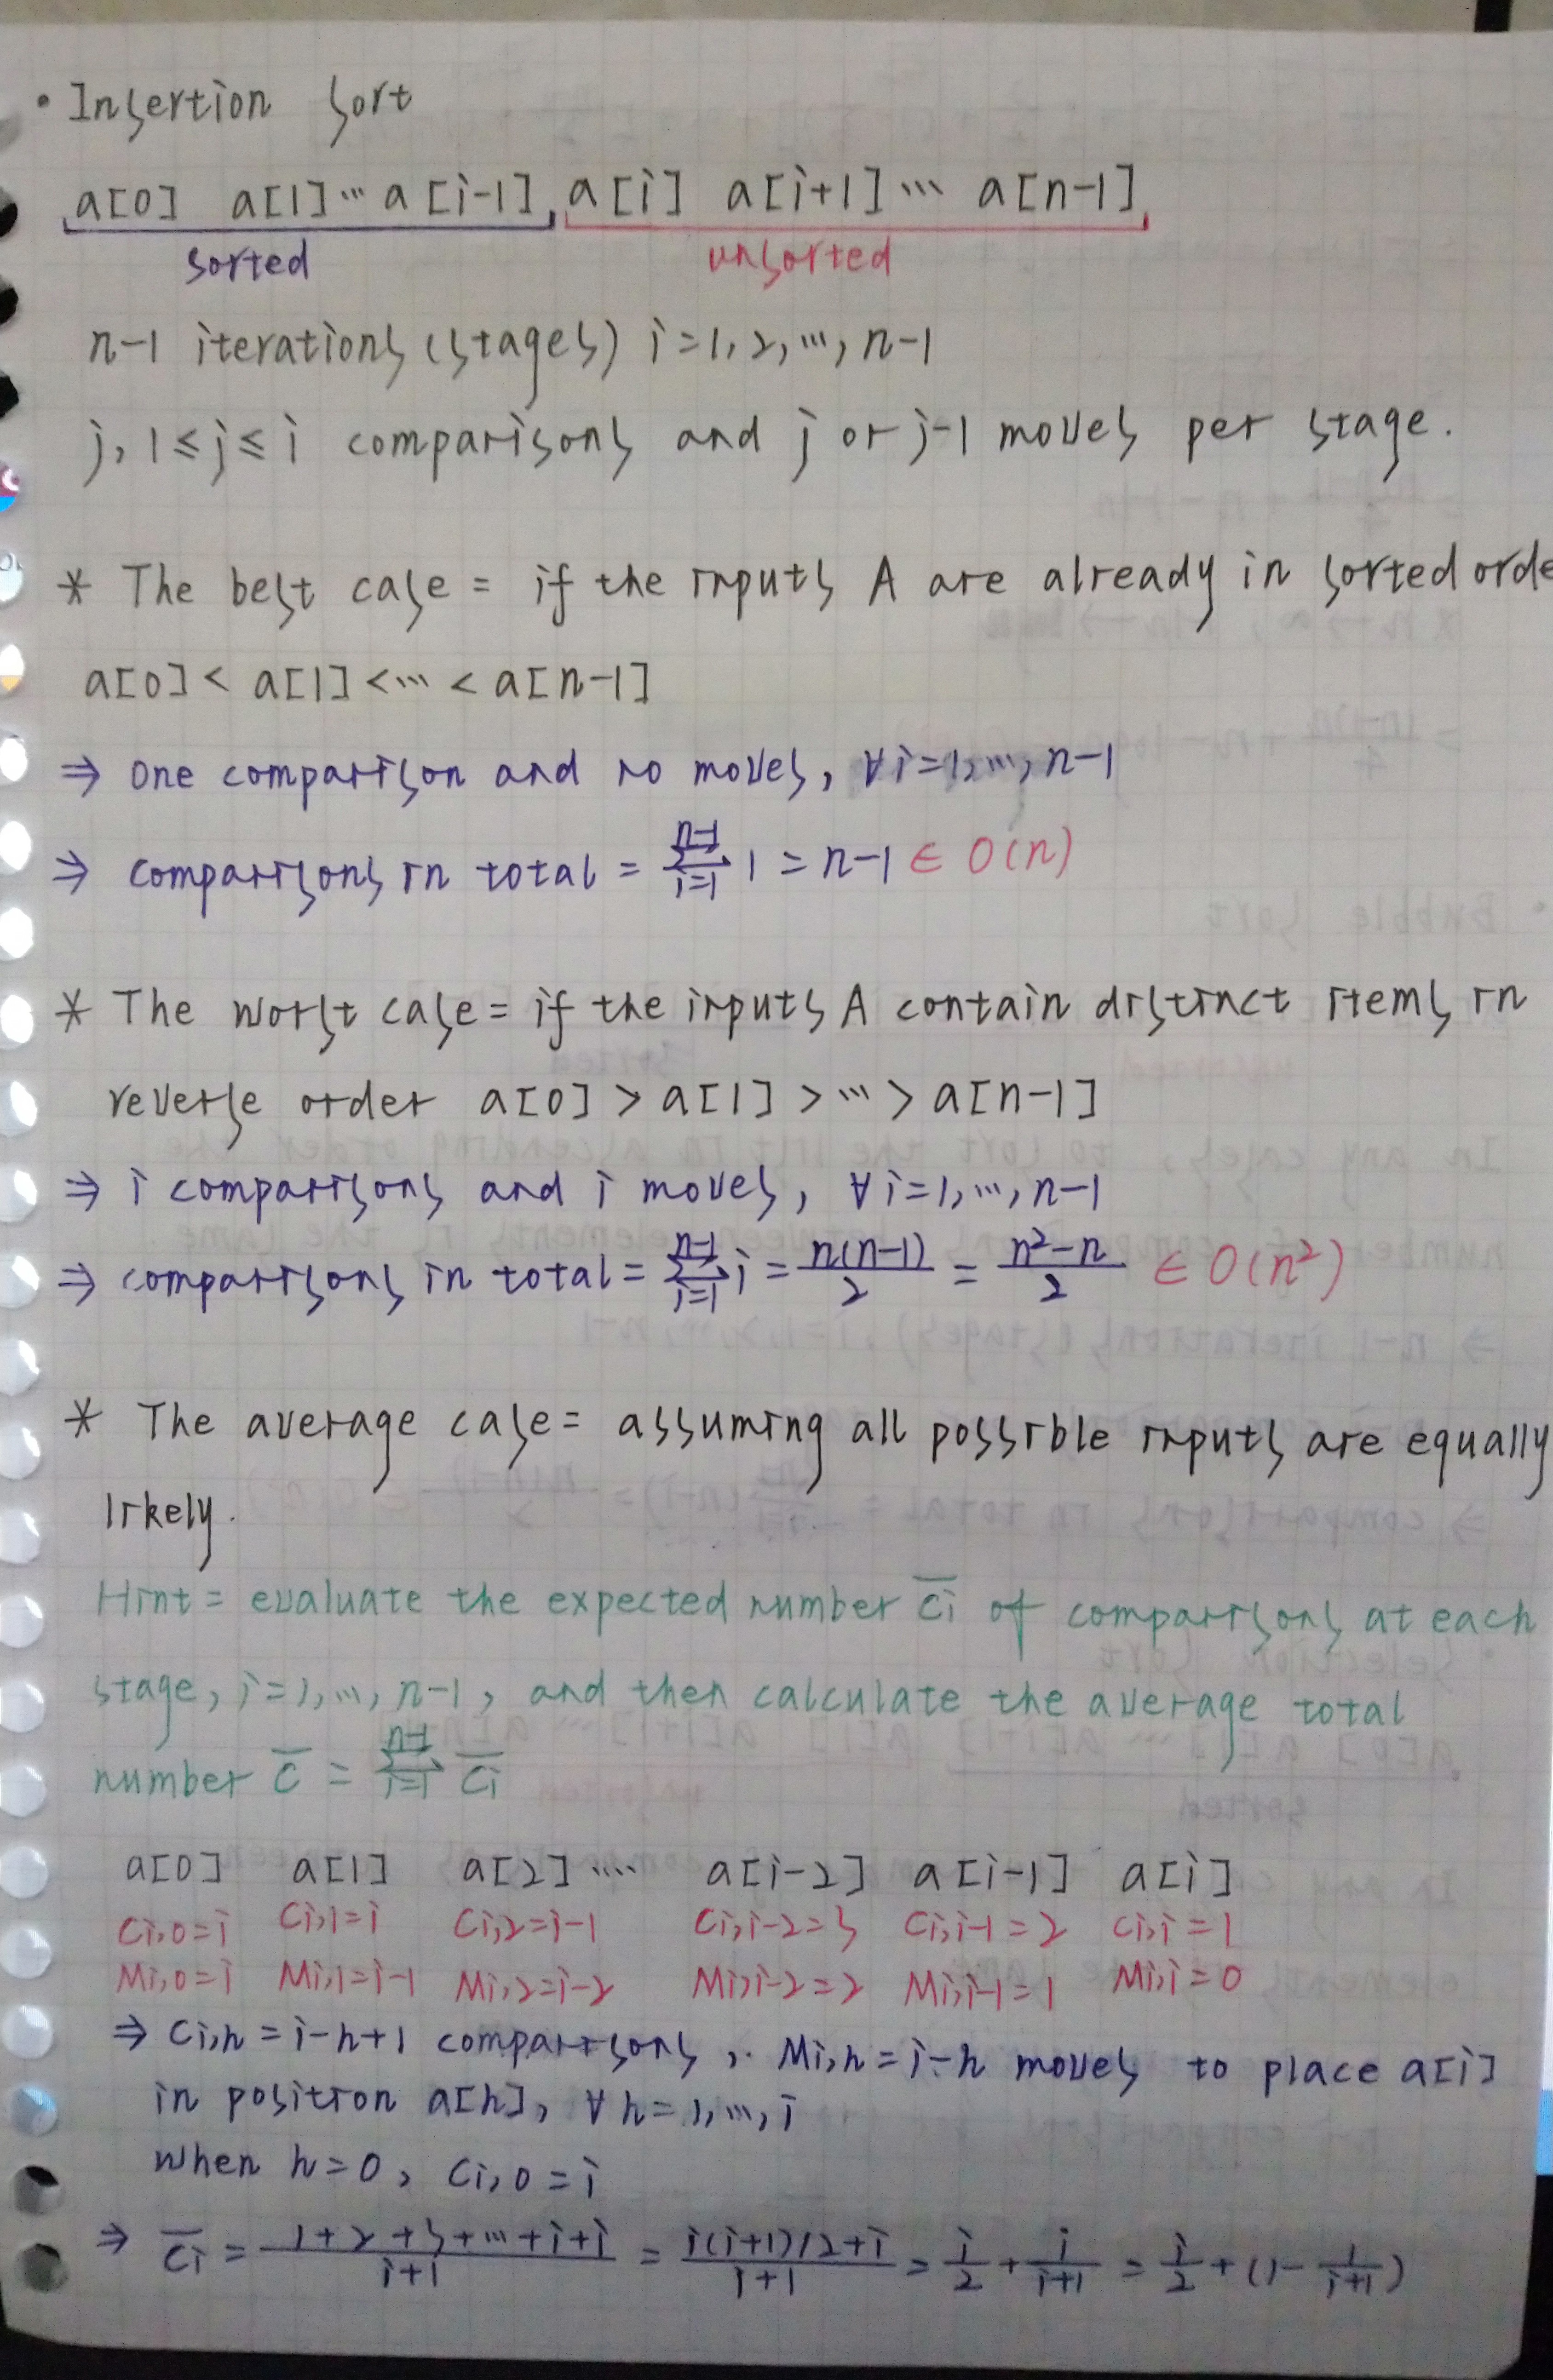 • Insertion Sort
a[0] a[1] ... a[i-1] a[i] a[i+1] ... a[n-1]
sorted unsorted
n-1 iterations (stages) i=1,2,...,n-1
j, 1≤j≤i comparisons and j or j-1 moves per stage.
* The best case = if the inputs A are already in sorted orde
a[0] < a[1] < ... < a[n-1]
⇒ one comparison and no moves, ∀i=1,...,n-1
⇒ comparisons in total = ∑_{i=1}^{n-1} 1 = n-1 ∈ O(n)
* The worst case = if the inputs A contain distinct items in
reverse order a[0] > a[1] > ... > a[n-1]
⇒ i comparisons and i moves, ∀i=1,...,n-1
⇒ comparisons in total = ∑_{i=1}^{n-1} i = n(n-1)/2 = (n²-n)/2 ∈ O(n²)
* The average case = assuming all possible inputs are equally
likely.
Hint = evaluate the expected number C̅i of comparisons at each
stage, i=1,...,n-1, and then calculate the average total
number C̅ = ∑_{i=1}^{n-1} C̅i
a[0] a[1] a[2] .... a[i-2] a[i-1] a[i]
Ci,0=i Ci,1=i Ci,2=i-1 Ci,i-2=3 Ci,i-1=2 Ci,i=1
Mi,0=i Mi,1=i-1 Mi,2=i-2 Mi,i-2=2 Mi,i-1=1 Mi,i=0
⇒ Ci,h = i-h+1 comparisons, Mi,h = i-h moves to place a[i]
in position a[h], ∀h=1,...,i
When h=0, Ci,0 = i
⇒ C̅i = (1+2+3+...+i+i)/(i+1) = (i(i+1)/2+i)/(i+1) = i/2 + i/(i+1) = i/2 + (1 - 1/(i+1))